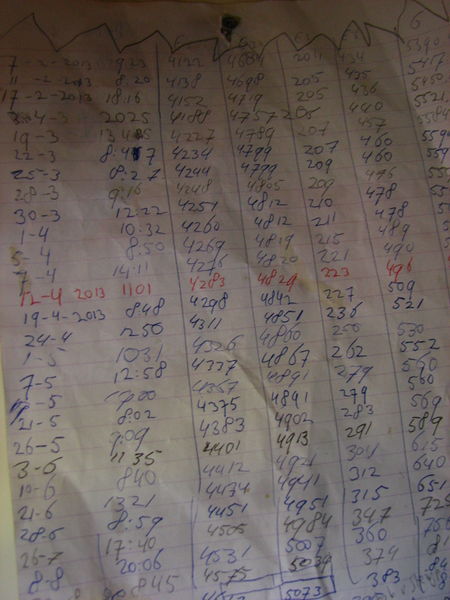 6
5390
7-2-2013 19:23 4122 4684 204 434 5417
11-2-2013 8:20 4138 4698 205 435 5450
17-2-2013 18:16 4152 4719 205 436 5521
4-3 2025 4188 4757 206 440
19-3 4227 4789 207 457
22-3 4234 4799 207 460
25-3 8:27 4244 4799 209 460
28-3 9:16 4248 4805 209 476
30-3 12:22 4251 4812 210 478
1-4 10:32 4260 4812 211 478
5-4 8:50 4269 4819 215 489
7-4 14:11 4276 4820 221 490
12-4 2013 1101 4283 4829 223 496
19-4-2013 848 4298 4842 227 509
24-4 1250 4311 4851 236 521
1-5 1031 4326 4860 250 530
7-5 12:58 4337 4867 262 552
4891 279
21-5 8:02 4375 4891 279 560
26-5 9:09 4383 4902 283 569
3-6 1135 4401 4913 291 589
840 4412 4921 301 615
21-6 1321 4474 4941 312 640
28-6 8:59 4451 4951 315 651
26-7 17:40 4505 4984 347
8-8 20:06 4531 5007 360
845 4575 5034 374
5073 383